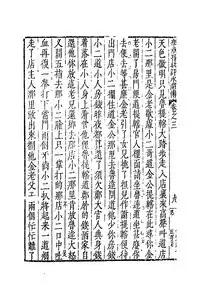 天色微明只見魯提轄大踏步走入店裏來高聲叫道店
小二那里是金老歇處小二道金公提轄在此尋你金
老開了房門便道提轄官人裏面請坐魯達道坐甚麼你
去便去等甚麼金老引了女兒挑了擔兒作謝提轄便待
出門店小二攔住道金公那里去魯達問道他少你房錢
小二道小人房錢昨夜都算還了須欠鄭大官人典身錢
着落在小人身上看管他哩魯提轄道鄭屠的錢酒家自
還他你放這老兒還鄉去那店小二那里肯放魯達大怒
叉開五指去那小二臉上只一掌打的那店小二口中吐
血再復一拳打下當門兩個牙齒小二扒將起來一道煙
走了店主人那里敢出來攔他金老父子兩個忙忙離了
卷之三